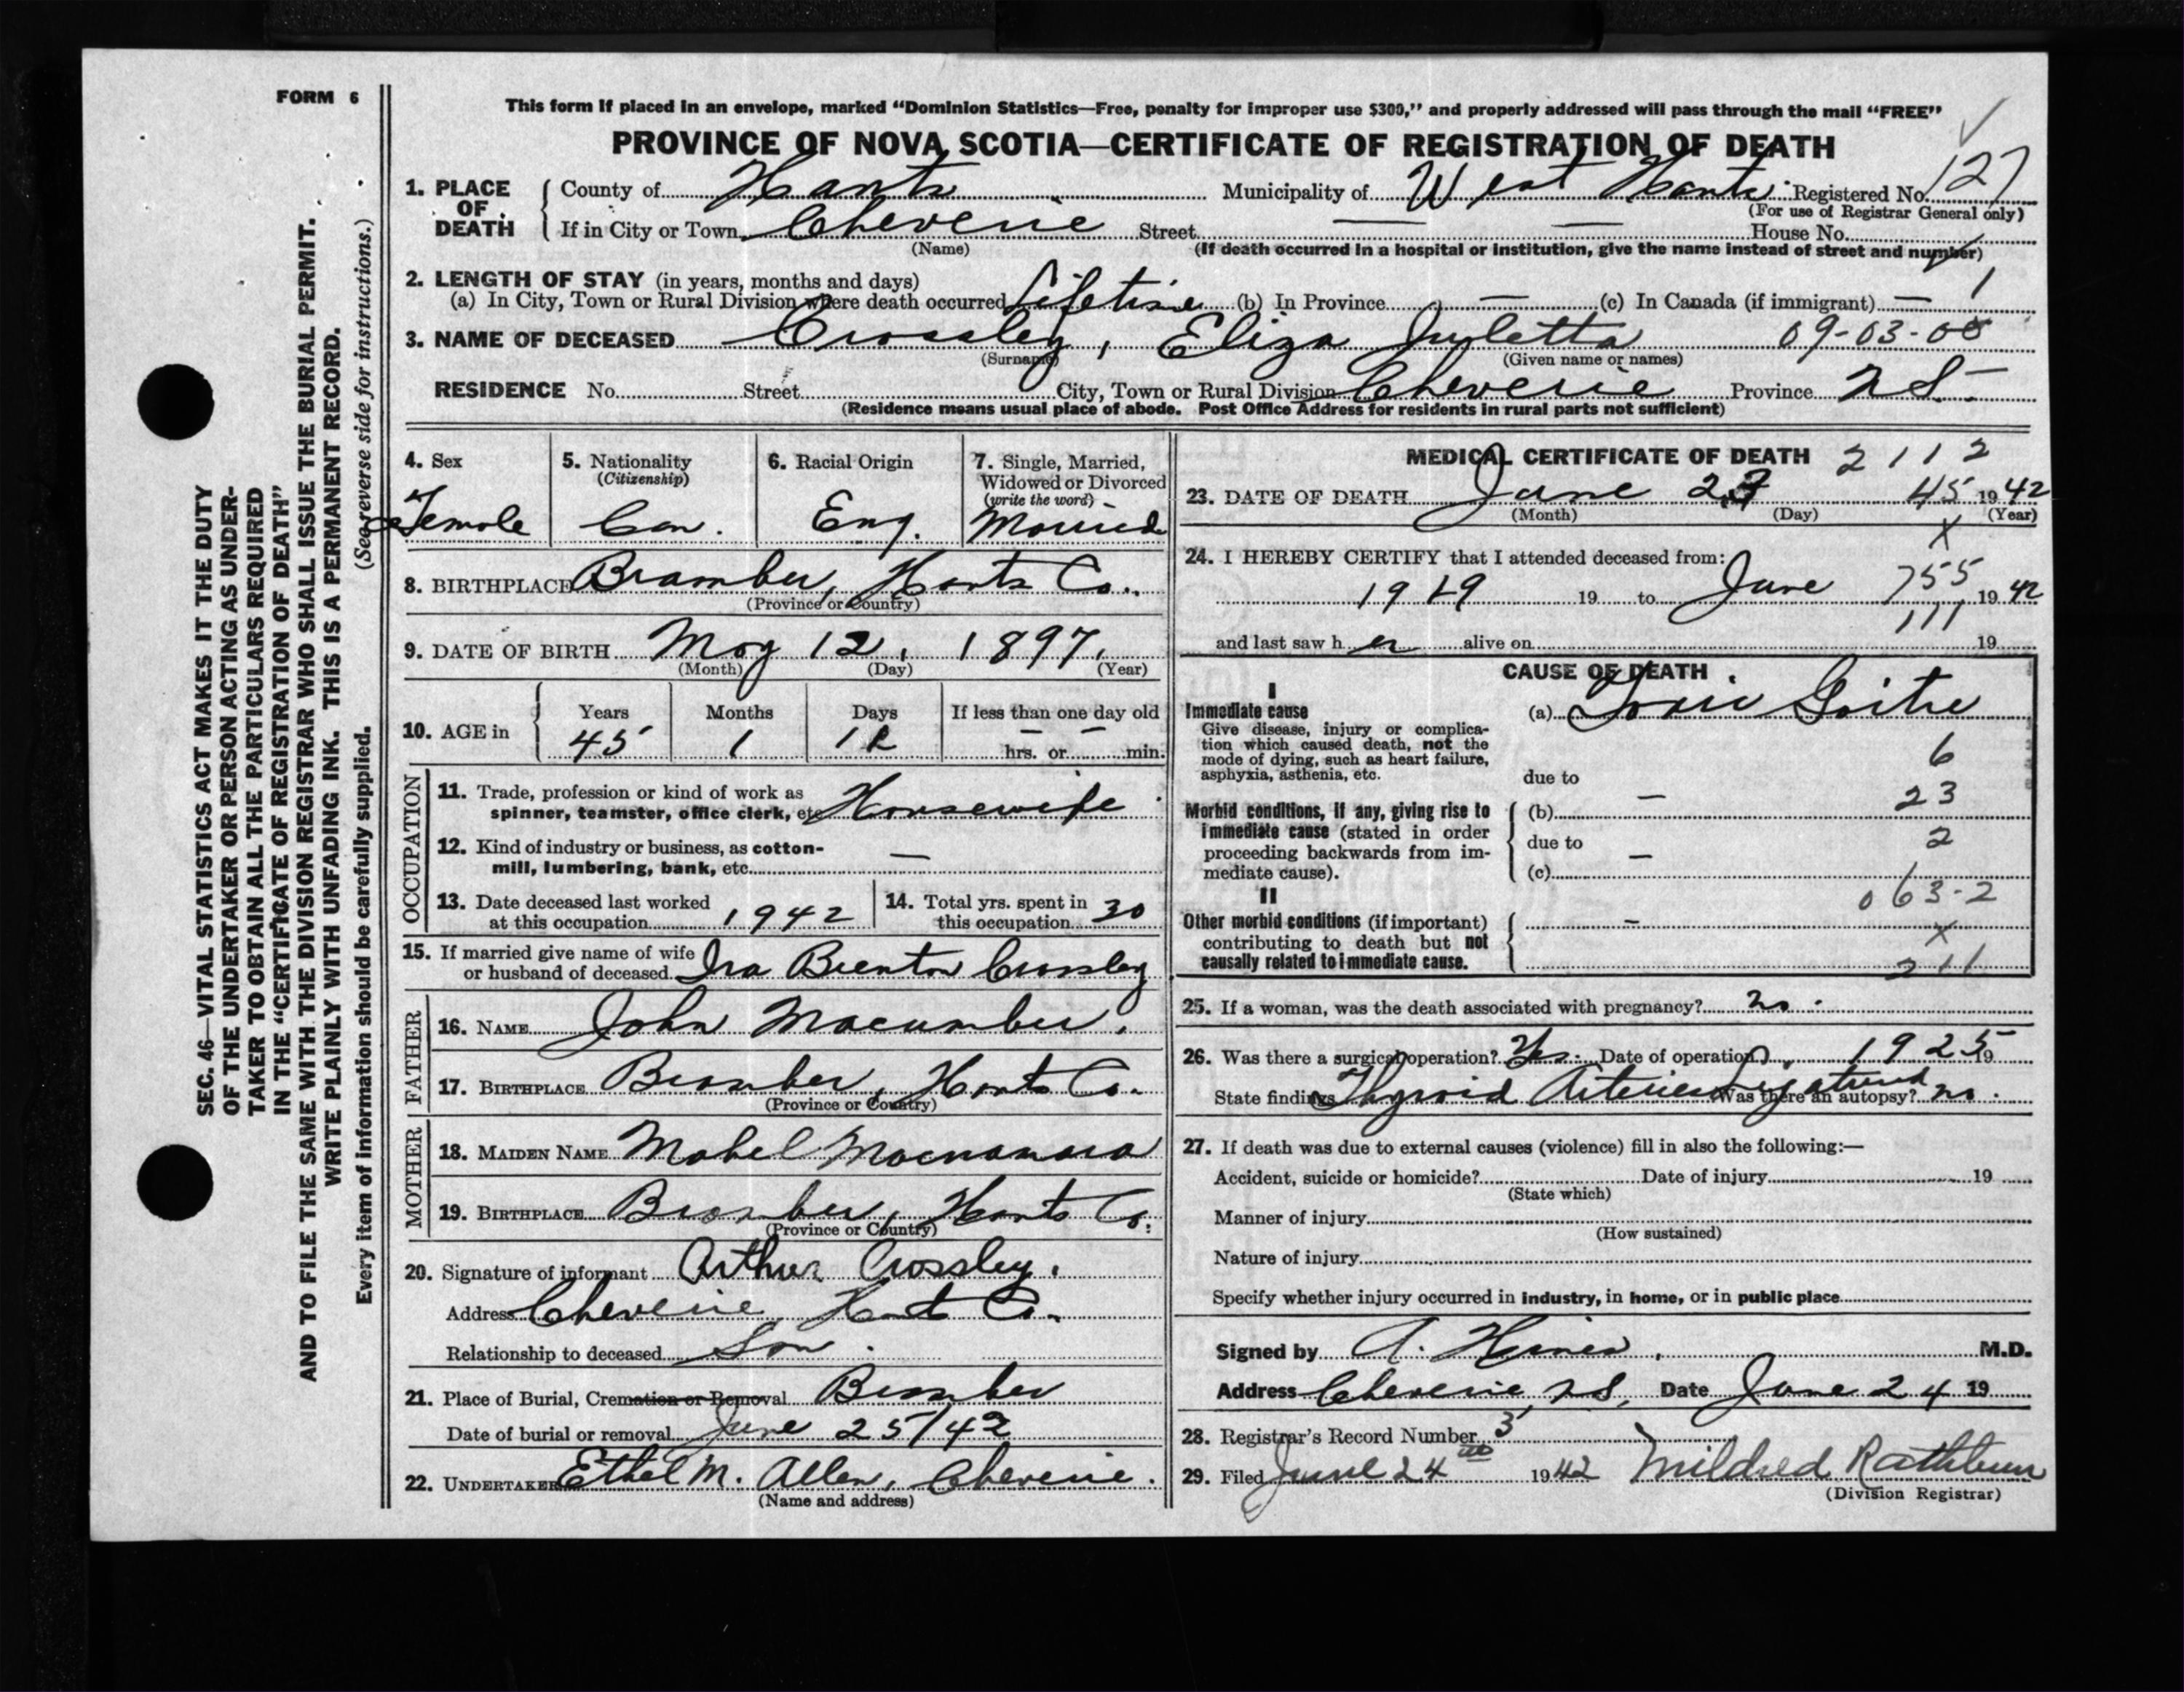 FORM 6
SEC. 46—VITAL STATISTICS ACT MAKES IT THE DUTY
OF THE UNDERTAKER OR PERSON ACTING AS UNDER-
TAKER TO OBTAIN ALL THE PARTICULARS REQUIRED
IN THE "CERTIFICATE OF REGISTRATION OF DEATH"
AND TO FILE THE SAME WITH THE DIVISION REGISTRAR WHO SHALL ISSUE THE BURIAL PERMIT.
WRITE PLAINLY WITH UNFADING INK. THIS IS A PERMANENT RECORD.
Every item of information should be carefully supplied. (See reverse side for instructions.)
This form if placed in an envelope, marked "Dominion Statistics—Free, penalty for improper use $300," and properly addressed will pass through the mail "FREE"
PROVINCE OF NOVA SCOTIA—CERTIFICATE OF REGISTRATION OF DEATH
1. PLACE OF DEATH County of Hants Municipality of West Hants Registered No. 127
(For use of Registrar General only)
If in City or Town Cheverie Street — — House No.
(Name) (If death occurred in a hospital or institution, give the name instead of street and number)
2. LENGTH OF STAY (in years, months and days)
(a) In City, Town or Rural Division where death occurred Lifetime (b) In Province — (c) In Canada (if immigrant) — 1
3. NAME OF DECEASED Crossley, Eliza Juletta 09-03-00
(Surname) (Given name or names)
RESIDENCE No. Street City, Town or Rural Division Cheverie Province N.S.
(Residence means usual place of abode. Post Office Address for residents in rural parts not sufficient)
4. Sex Female
5. Nationality (Citizenship) Can.
6. Racial Origin Eng.
7. Single, Married, Widowed or Divorced (write the word) Married
8. BIRTHPLACE Bramber, Hants Co.
(Province or Country)
9. DATE OF BIRTH May 12, 1897.
(Month) (Day) (Year)
10. AGE in Years 45 Months 1 Days If less than one day old — hrs. or — min.
OCCUPATION
11. Trade, profession or kind of work as
spinner, teamster, office clerk, etc. Housewife
12. Kind of industry or business, as cotton-
mill, lumbering, bank, etc. —
13. Date deceased last worked
at this occupation 1942
14. Total yrs. spent in
this occupation 30
15. If married give name of wife
or husband of deceased. Ira Brenton Crossley
FATHER
16. NAME John Macumber.
17. BIRTHPLACE Bramber, Hants Co.
(Province or Country)
MOTHER
18. MAIDEN NAME Mabel Macnamara
19. BIRTHPLACE Bramber, Hants Co.
(Province or Country)
20. Signature of informant Arthur Crossley.
Address Cheverie, Hants Co.
Relationship to deceased Son.
21. Place of Burial, Cremation or Removal Bramber
Date of burial or removal June 25/42
22. UNDERTAKER Ethel M. Allen, Cheverie.
(Name and address)
MEDICAL CERTIFICATE OF DEATH 2112
23. DATE OF DEATH June 23 45 1942
(Month) (Day) (Year)
x
24. I HEREBY CERTIFY that I attended deceased from:
1919 19 to June 755 1942
111
and last saw her alive on 19
CAUSE OF DEATH
I
Immediate cause
Give disease, injury or complica-
tion which caused death, not the
mode of dying, such as heart failure,
asphyxia, asthenia, etc.
(a) Toxic Goitre
6
due to
Morbid conditions, if any, giving rise to
immediate cause (stated in order
proceeding backwards from im-
mediate cause).
— 23
(b)
due to 2
—
(c)
063-2
II
Other morbid conditions (if important)
contributing to death but not
causally related to immediate cause.
—
x
211
25. If a woman, was the death associated with pregnancy? no.
26. Was there a surgical operation? Yes. Date of operation 1925 19
State findings Thyroid Arteries Ligatured Was there an autopsy? no.
27. If death was due to external causes (violence) fill in also the following:—
Accident, suicide or homicide? Date of injury 19
(State which)
Manner of injury
(How sustained)
Nature of injury
Specify whether injury occurred in industry, in home, or in public place
Signed by A. M.D.
Address Cheverie, N.S. Date June 24 19
28. Registrar's Record Number 3
29. Filed June 24 1942 Mildred Rathbun
(Division Registrar)